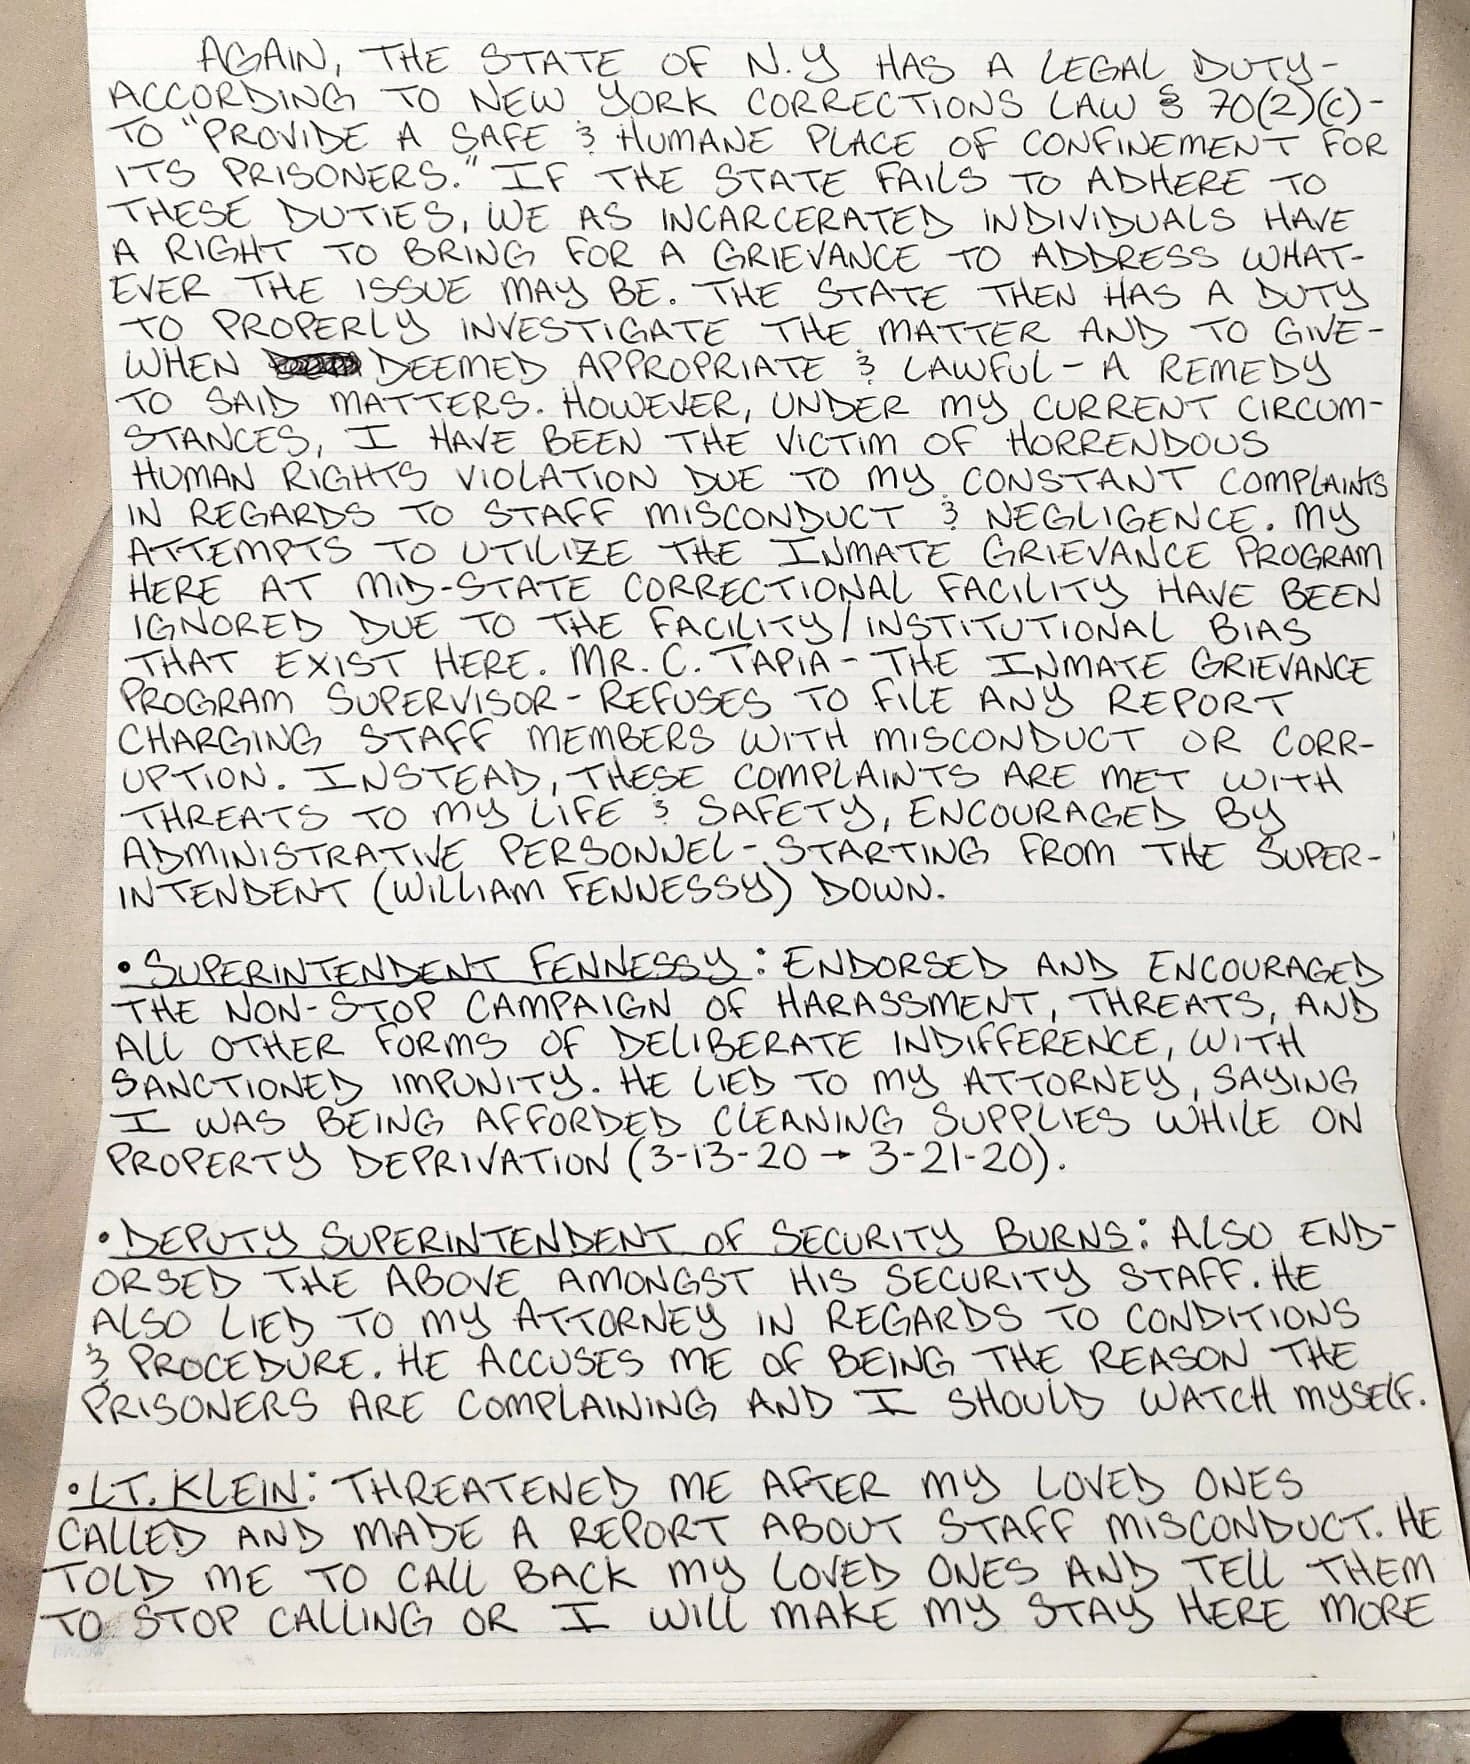 AGAIN, THE STATE OF N.Y HAS A LEGAL DUTY-
ACCORDING TO NEW YORK CORRECTIONS LAW § 70(2)(C)-
TO "PROVIDE A SAFE & HUMANE PLACE OF CONFINEMENT FOR
ITS PRISONERS." IF THE STATE FAILS TO ADHERE TO
THESE DUTIES, WE AS INCARCERATED INDIVIDUALS HAVE
A RIGHT TO BRING FOR A GRIEVANCE TO ADDRESS WHAT-
EVER THE ISSUE MAY BE. THE STATE THEN HAS A DUTY
TO PROPERLY INVESTIGATE THE MATTER AND TO GIVE-
WHEN DEEMED APPROPRIATE & LAWFUL- A REMEDY
TO SAID MATTERS. HOWEVER, UNDER MY CURRENT CIRCUM-
STANCES, I HAVE BEEN THE VICTIM OF HORRENDOUS
HUMAN RIGHTS VIOLATION DUE TO MY CONSTANT COMPLAINTS
IN REGARDS TO STAFF MISCONDUCT & NEGLIGENCE. MY
ATTEMPTS TO UTILIZE THE INMATE GRIEVANCE PROGRAM
HERE AT MID-STATE CORRECTIONAL FACILITY HAVE BEEN
IGNORED DUE TO THE FACILITY/INSTITUTIONAL BIAS
THAT EXIST HERE. MR. C. TAPIA- THE INMATE GRIEVANCE
PROGRAM SUPERVISOR- REFUSES TO FILE ANY REPORT
CHARGING STAFF MEMBERS WITH MISCONDUCT OR CORR-
UPTION. INSTEAD, THESE COMPLAINTS ARE MET WITH
THREATS TO MY LIFE & SAFETY, ENCOURAGED BY
ADMINISTRATIVE PERSONNEL- STARTING FROM THE SUPER-
INTENDENT (WILLIAM FENNESSY) DOWN.
• SUPERINTENDENT FENNESSY: ENDORSED AND ENCOURAGED
THE NON-STOP CAMPAIGN OF HARASSMENT, THREATS, AND
ALL OTHER FORMS OF DELIBERATE INDIFFERENCE, WITH
SANCTIONED IMPUNITY. HE LIED TO MY ATTORNEY, SAYING
I WAS BEING AFFORDED CLEANING SUPPLIES WHILE ON
PROPERTY DEPRIVATION (3-13-20 → 3-21-20).
• DEPUTY SUPERINTENDENT OF SECURITY BURNS: ALSO END-
ORSED THE ABOVE AMONGST HIS SECURITY STAFF. HE
ALSO LIED TO MY ATTORNEY IN REGARDS TO CONDITIONS
& PROCEDURE. HE ACCUSES ME OF BEING THE REASON THE
PRISONERS ARE COMPLAINING AND I SHOULD WATCH MYSELF.
• LT. KLEIN: THREATENED ME AFTER MY LOVED ONES
CALLED AND MADE A REPORT ABOUT STAFF MISCONDUCT. HE
TOLD ME TO CALL BACK MY LOVED ONES AND TELL THEM
TO STOP CALLING OR I WILL MAKE MY STAY HERE MORE